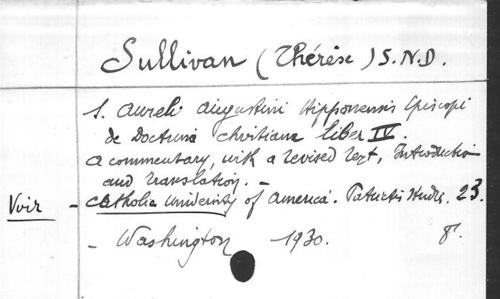 Sullivan (Thérèse) S.N.D.
S. Aureli Augustini Hipponensis Episcopi
de Doctrina christiana liber IV.
a commentary, with a revised text, Introduction
and translation. —
Voir - Catholic University of America. Patristic Studies. 23.
- Washington 1930. 8°.